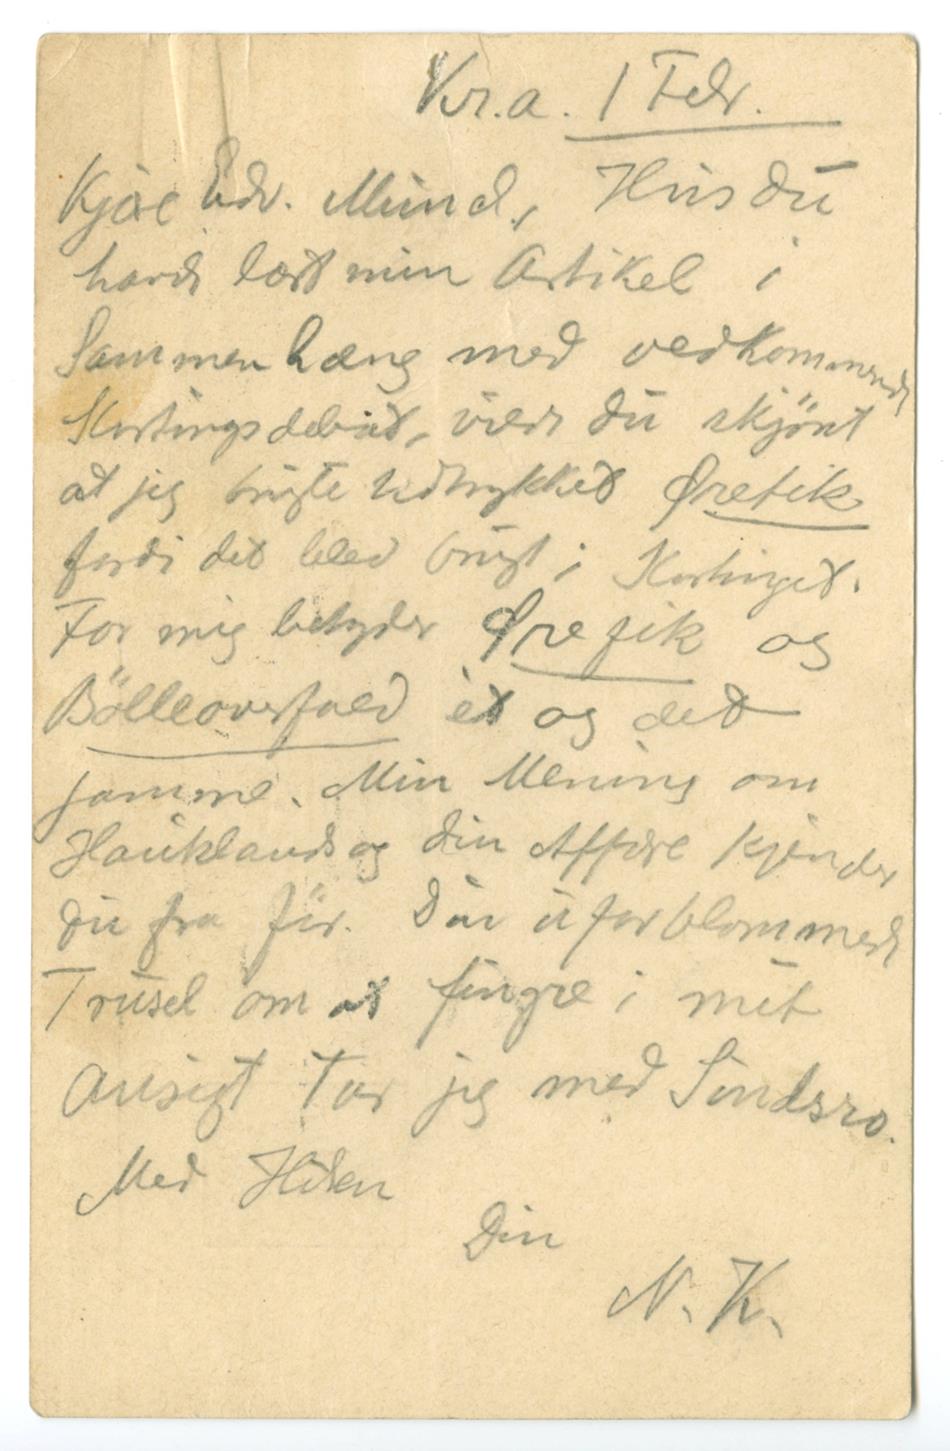 Kr.a. 1 Febr.
Kjære Edv. Munch, Hvis du
havde læst min Artikel i
Sammenhæng med vedkommende
Stortingsdebat, vilde du skjönt
at jeg brugte Udtrykket Ørefik
fordi det blev brugt i Stortinget.
For mig betyder Ørefik og
Bölleoverfald ét og det
samme. Min Mening om
Hauklands og din Affære kjender
du fra för. Din uforblommede
Trusel om at fingre i mit
Ansigt tar jeg med Sindsro.
Med Hilsen
Din
N. K.